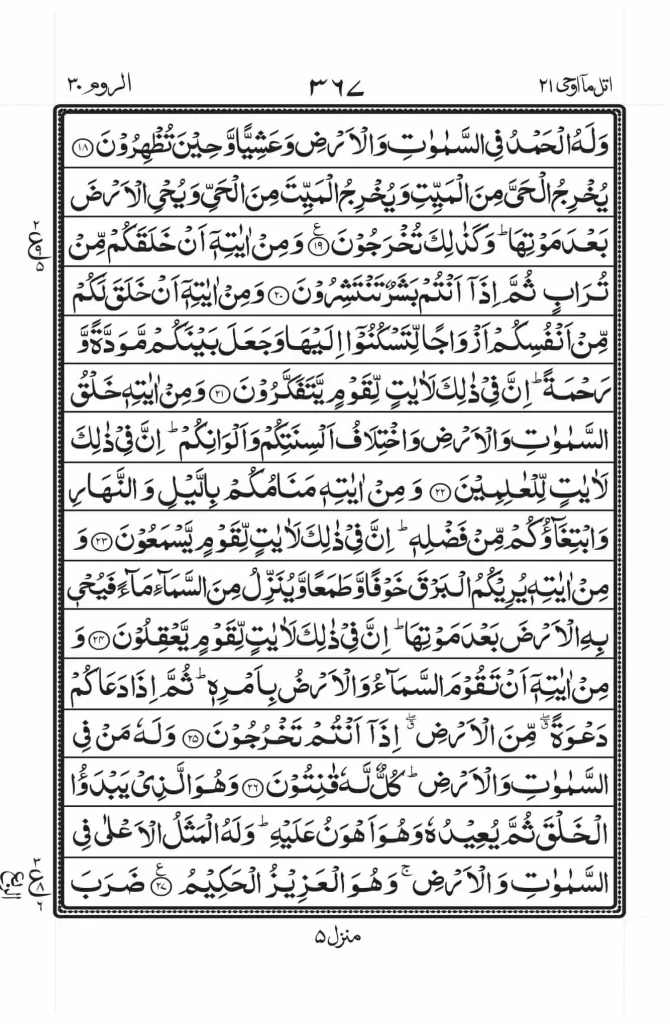 اتل مآ اوحی ۲۱ ۳٦۷ الروم ۳۰
وَلَهُ الْحَمْدُ فِی السَّمٰوٰتِ وَالْاَرْضِ وَعَشِیًّا وَّحِیْنَ تُظْهِرُوْنَ ﴿۱۸﴾
یُخْرِجُ الْحَیَّ مِنَ الْمَیِّتِ وَیُخْرِجُ الْمَیِّتَ مِنَ الْحَیِّ وَیُحْیِ الْاَرْضَ
بَعْدَ مَوْتِهَا ؕ وَكَذٰلِكَ تُخْرَجُوْنَ ﴿۱۹﴾ ع وَمِنْ اٰیٰتِهٖۤ اَنْ خَلَقَكُمْ مِّنْ
۲ ع ۹ ۵
تُرَابٍ ثُمَّ اِذَاۤ اَنْتُمْ بَشَرٌ تَنْتَشِرُوْنَ ﴿۲۰﴾ وَمِنْ اٰیٰتِهٖۤ اَنْ خَلَقَ لَكُمْ
مِّنْ اَنْفُسِكُمْ اَزْوَاجًا لِّتَسْكُنُوْۤا اِلَیْهَا وَجَعَلَ بَیْنَكُمْ مَّوَدَّةً وَّ
رَحْمَةً ؕ اِنَّ فِیْ ذٰلِكَ لَاٰیٰتٍ لِّقَوْمٍ یَّتَفَكَّرُوْنَ ﴿۲۱﴾ وَمِنْ اٰیٰتِهٖ خَلْقُ
السَّمٰوٰتِ وَالْاَرْضِ وَاخْتِلَافُ اَلْسِنَتِكُمْ وَاَلْوَانِكُمْ ؕ اِنَّ فِیْ ذٰلِكَ
لَاٰیٰتٍ لِّلْعٰلِمِیْنَ ﴿۲۲﴾ وَمِنْ اٰیٰتِهٖ مَنَامُكُمْ بِالَّیْلِ وَالنَّهَارِ
وَابْتِغَآؤُكُمْ مِّنْ فَضْلِهٖ ؕ اِنَّ فِیْ ذٰلِكَ لَاٰیٰتٍ لِّقَوْمٍ یَّسْمَعُوْنَ ﴿۲۳﴾ وَ
مِنْ اٰیٰتِهٖ یُرِیْكُمُ الْبَرْقَ خَوْفًا وَّطَمَعًا وَّیُنَزِّلُ مِنَ السَّمَآءِ مَآءً فَیُحْیٖ
بِهِ الْاَرْضَ بَعْدَ مَوْتِهَا ؕ اِنَّ فِیْ ذٰلِكَ لَاٰیٰتٍ لِّقَوْمٍ یَّعْقِلُوْنَ ﴿۲۴﴾ وَ
مِنْ اٰیٰتِهٖۤ اَنْ تَقُوْمَ السَّمَآءُ وَالْاَرْضُ بِاَمْرِهٖ ؕ ثُمَّ اِذَا دَعَاكُمْ
دَعْوَةً ۖۗ مِّنَ الْاَرْضِ ۖۗ اِذَاۤ اَنْتُمْ تَخْرُجُوْنَ ﴿۲۵﴾ وَلَهٗ مَنْ فِی
السَّمٰوٰتِ وَالْاَرْضِ ؕ كُلٌّ لَّهٗ قٰنِتُوْنَ ﴿۲۶﴾ وَهُوَ الَّذِیْ یَبْدَؤُا
الْخَلْقَ ثُمَّ یُعِیْدُهٗ وَهُوَ اَهْوَنُ عَلَیْهِ ؕ وَلَهُ الْمَثَلُ الْاَعْلٰی فِی
السَّمٰوٰتِ وَالْاَرْضِ ۚ وَهُوَ الْعَزِیْزُ الْحَكِیْمُ ﴿۲۷﴾ ع ضَرَبَ
۳ ع ۸ ۶
منزل ۵